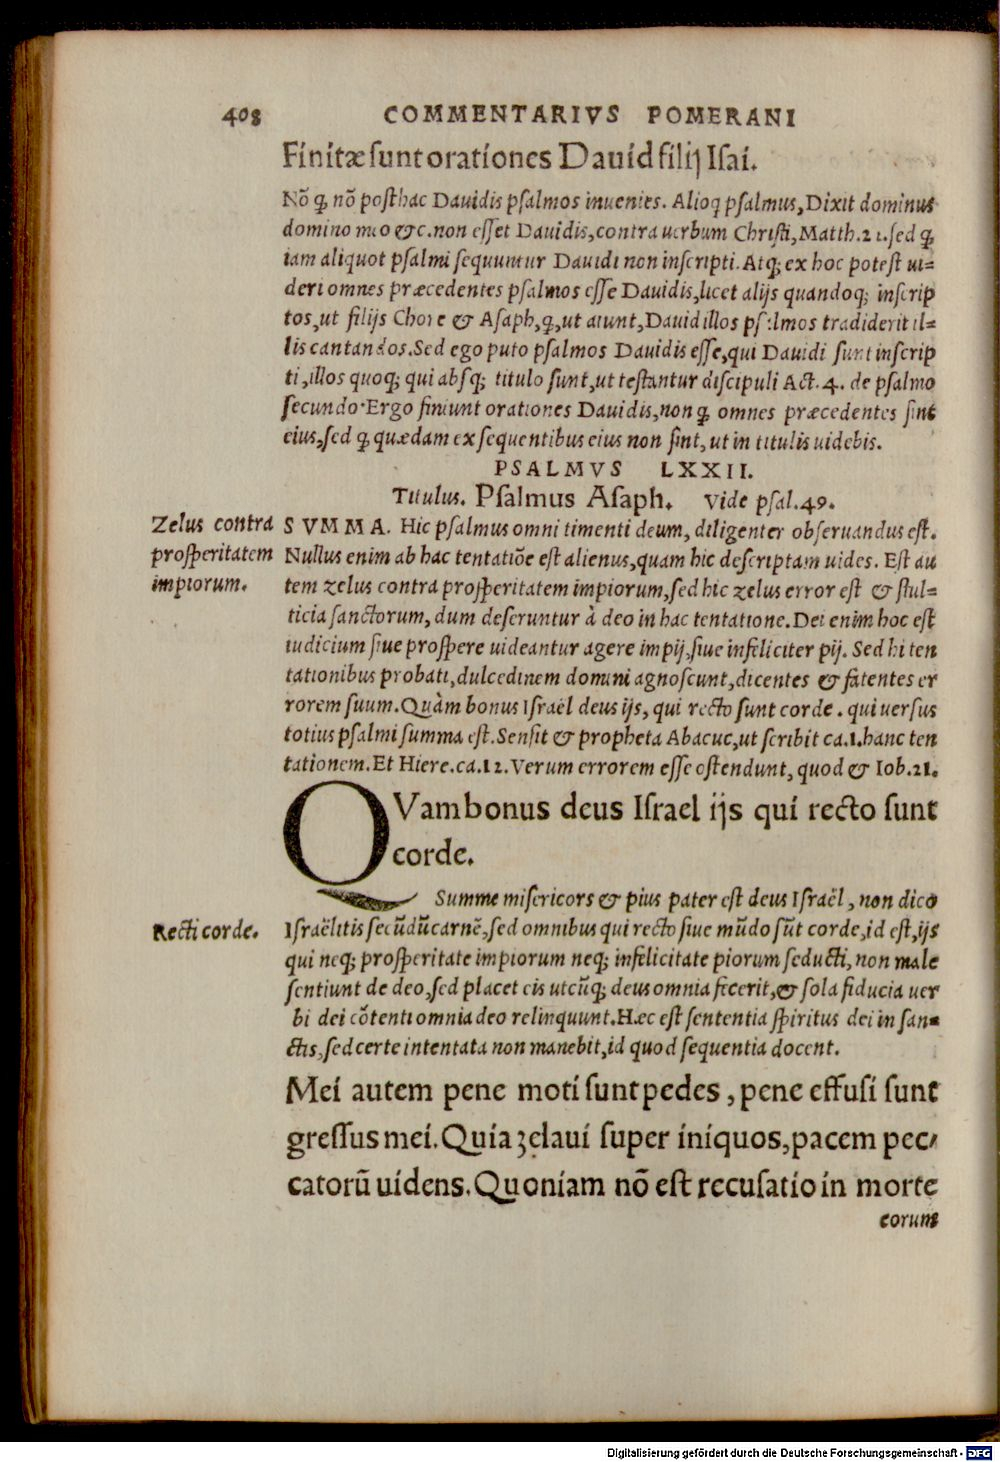 408 COMMENTARIVS POMERANI
Finitæ sunt orationes Dauid filij Isai.
Nõ ꝙ nõ posthac Dauidis psalmos inuenies. Alioq psalmus, Dixit dominus
domino meo &c. non esset Dauidis, contra uerbum Christi, Matth. 21. sed ꝙ
iam aliquot psalmi sequuntur Dauidi non inscripti. Atq; ex hoc potest ui=
deri omnes præcedentes psalmos esse Dauidis, licet alijs quandoq; inscrip
tos, ut filijs Chore & Asaph, ꝙ, ut aiunt, Dauid illos psalmos tradiderit il=
lis cantandos. Sed ego puto psalmos Dauidis esse, qui Dauidi sunt inscrip
ti, illos quoq; qui absq; titulo sunt, ut testantur discipuli Act. 4. de psalmo
secundo. Ergo finiunt orationes Dauidis, non ꝙ omnes præcedentes sint
eius, sed ꝙ quædam ex sequentibus eius non sint, ut in titulis uidebis.
PSALMVS LXXII.
Titulus. Psalmus Asaph. Vide psal. 49.
Zelus contra
prosperitatem
impiorum.
SVMMA. Hic psalmus omni timenti deum, diligenter obseruandus est.
Nullus enim ab hac tentatiõe est alienus, quam hic descriptam uides. Est au
tem zelus contra prosperitatem impiorum, sed hic zelus error est & stul=
ticia sanctorum, dum deseruntur à deo in hac tentatione. Dei enim hoc est
iudicium siue prospere uideantur agere impij, siue infeliciter pij. Sed hi ten
tationibus probati, dulcedinem domini agnoscunt, dicentes & fatentes er
rorem suum. Quàm bonus Israël deus ijs, qui recto sunt corde. qui uersus
totius psalmi summa est. Sensit & propheta Abacuc, ut scribit ca. 1. hanc ten
tationem. Et Hiere. ca. 12. Verum errorem esse ostendunt, quod & Iob. 21.
QVam bonus deus Israel ijs qui recto sunt
corde.
Summe misericors & pius pater est deus Israël, non dico
Recti corde.
Israëlitis secũdũ carnẽ, sed omnibus qui recto siue mũdo sũt corde, id est, ijs
qui neq; prosperitate impiorum neq; infelicitate piorum seducti, non male
sentiunt de deo, sed placet eis utcũq; deus omnia fecerit, & sola fiducia uer
bi dei cõtenti omnia deo relinquunt. Hæc est sententia spiritus dei in san=
ctis, sed certe intentata non manebit, id quod sequentia docent.
Mei autem pene moti sunt pedes, pene effusi sunt
gressus mei. Quia zelaui super iniquos, pacem pec/
catorũ uidens. Quoniam nõ est recusatio in morte
eorum
Digitalisierung gefördert durch die Deutsche Forschungsgemeinschaft - DFG